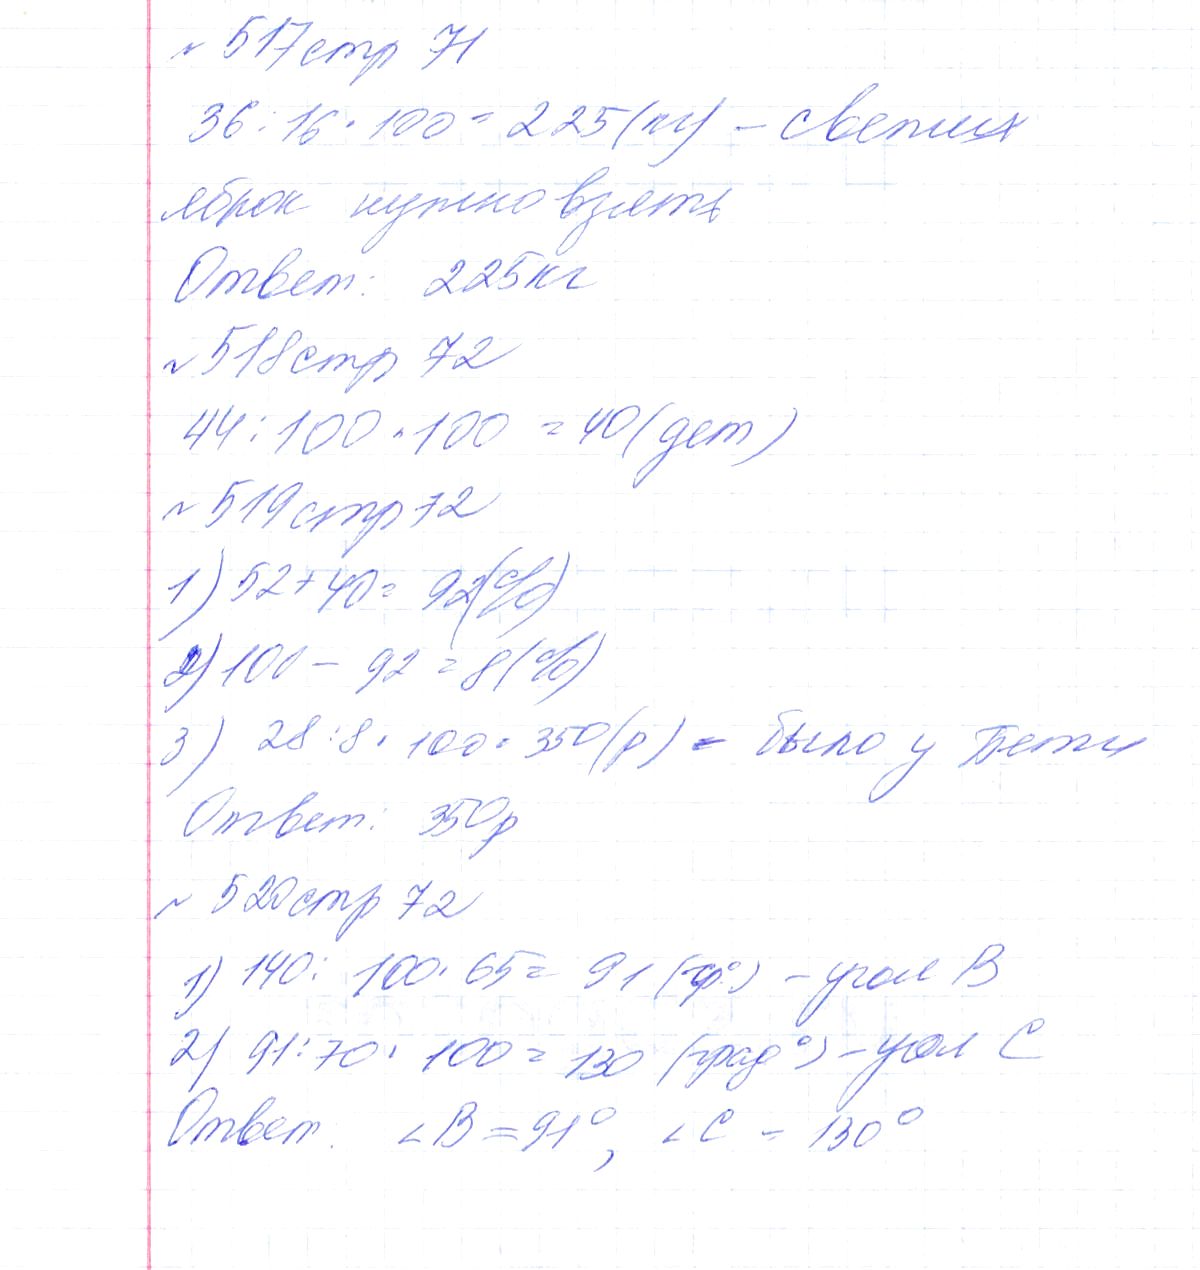 № 517 стр 71
36 : 16 · 100 = 225 (кг) – свежих
яблок нужно взять
Ответ: 225 кг
№ 518 стр 72
44 : 100 · 100 = 40 (дет)
№ 519 стр 72
1) 52 + 40 = 92 (%)
2) 100 – 92 = 8 (%)
3) 28 : 8 · 100 = 350 (р) – было у Пети
Ответ: 350 р
№ 520 стр 72
1) 140 : 100 · 65 = 91 (гр°) – угол B
2) 91 : 70 · 100 = 130 (град°) – угол C
Ответ: ∠B = 91°, ∠C = 130°